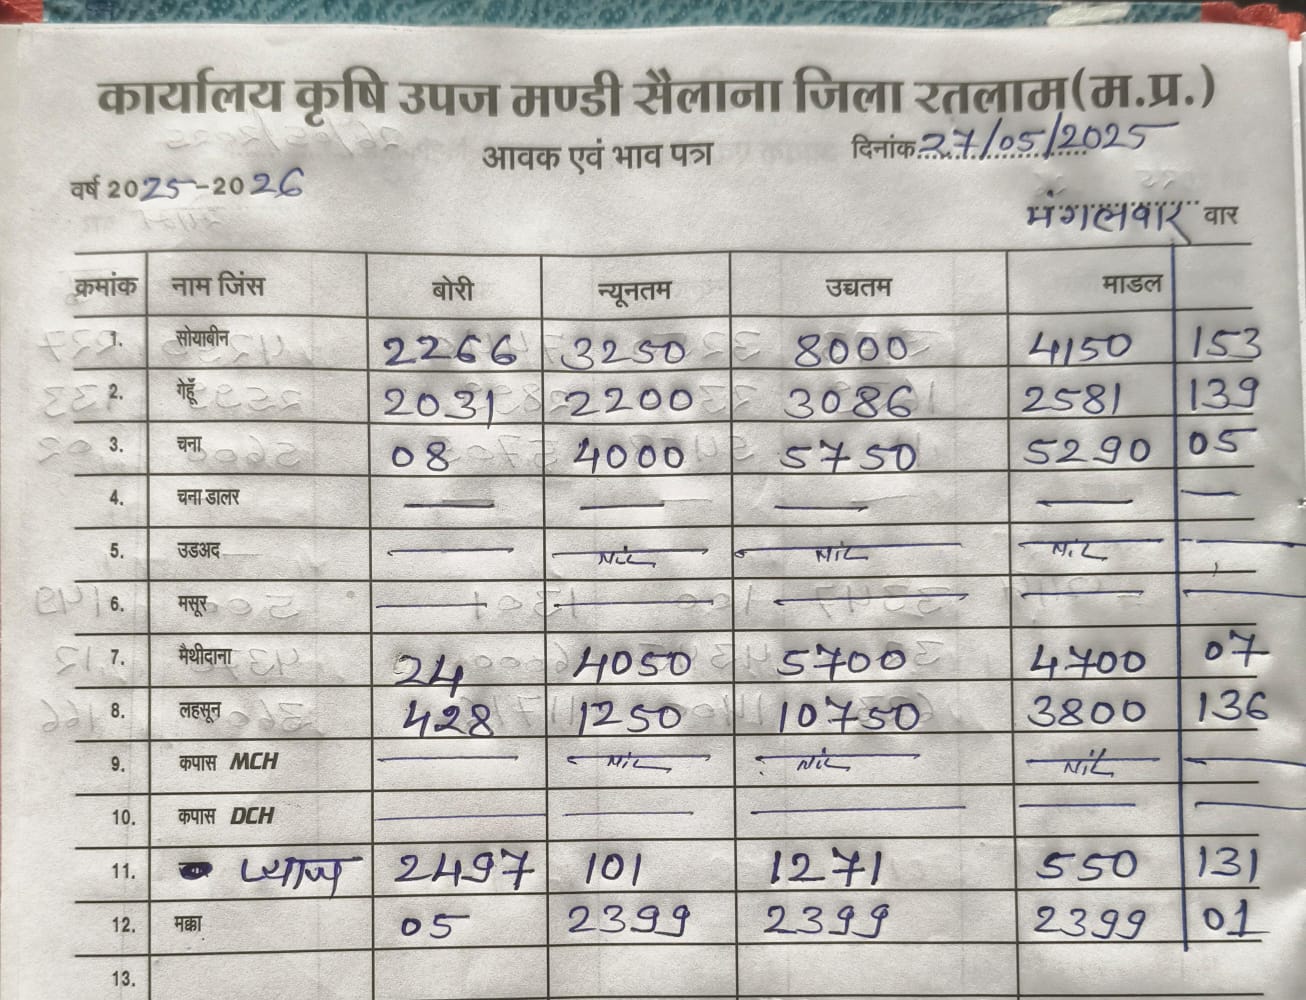 कार्यालय कृषि उपज मण्डी सैलाना जिला रतलाम(म.प्र.)
आवक एवं भाव पत्र दिनांक 27/05/2025
वर्ष 2025-2026
मंगलवार वार
क्रमांक नाम जिंस बोरी न्यूनतम उच्चतम माडल
1. सोयाबीन 2266 3250 8000 4150 153
2. गेहूँ 2031 2200 3086 2581 139
3. चना 08 4000 5750 5290 05
4. चना डालर — — — — —
5. उडअद — Nil Nil Nil —
6. मसूर — — — — —
7. मैथीदाना 24 4050 5700 4700 07
8. लहसून 428 1250 10750 3800 136
9. कपास MCH — Nil Nil Nil —
10. कपास DCH — — — — —
11. प्याज 2497 101 1271 550 131
12. मक्का 05 2399 2399 2399 01
13.